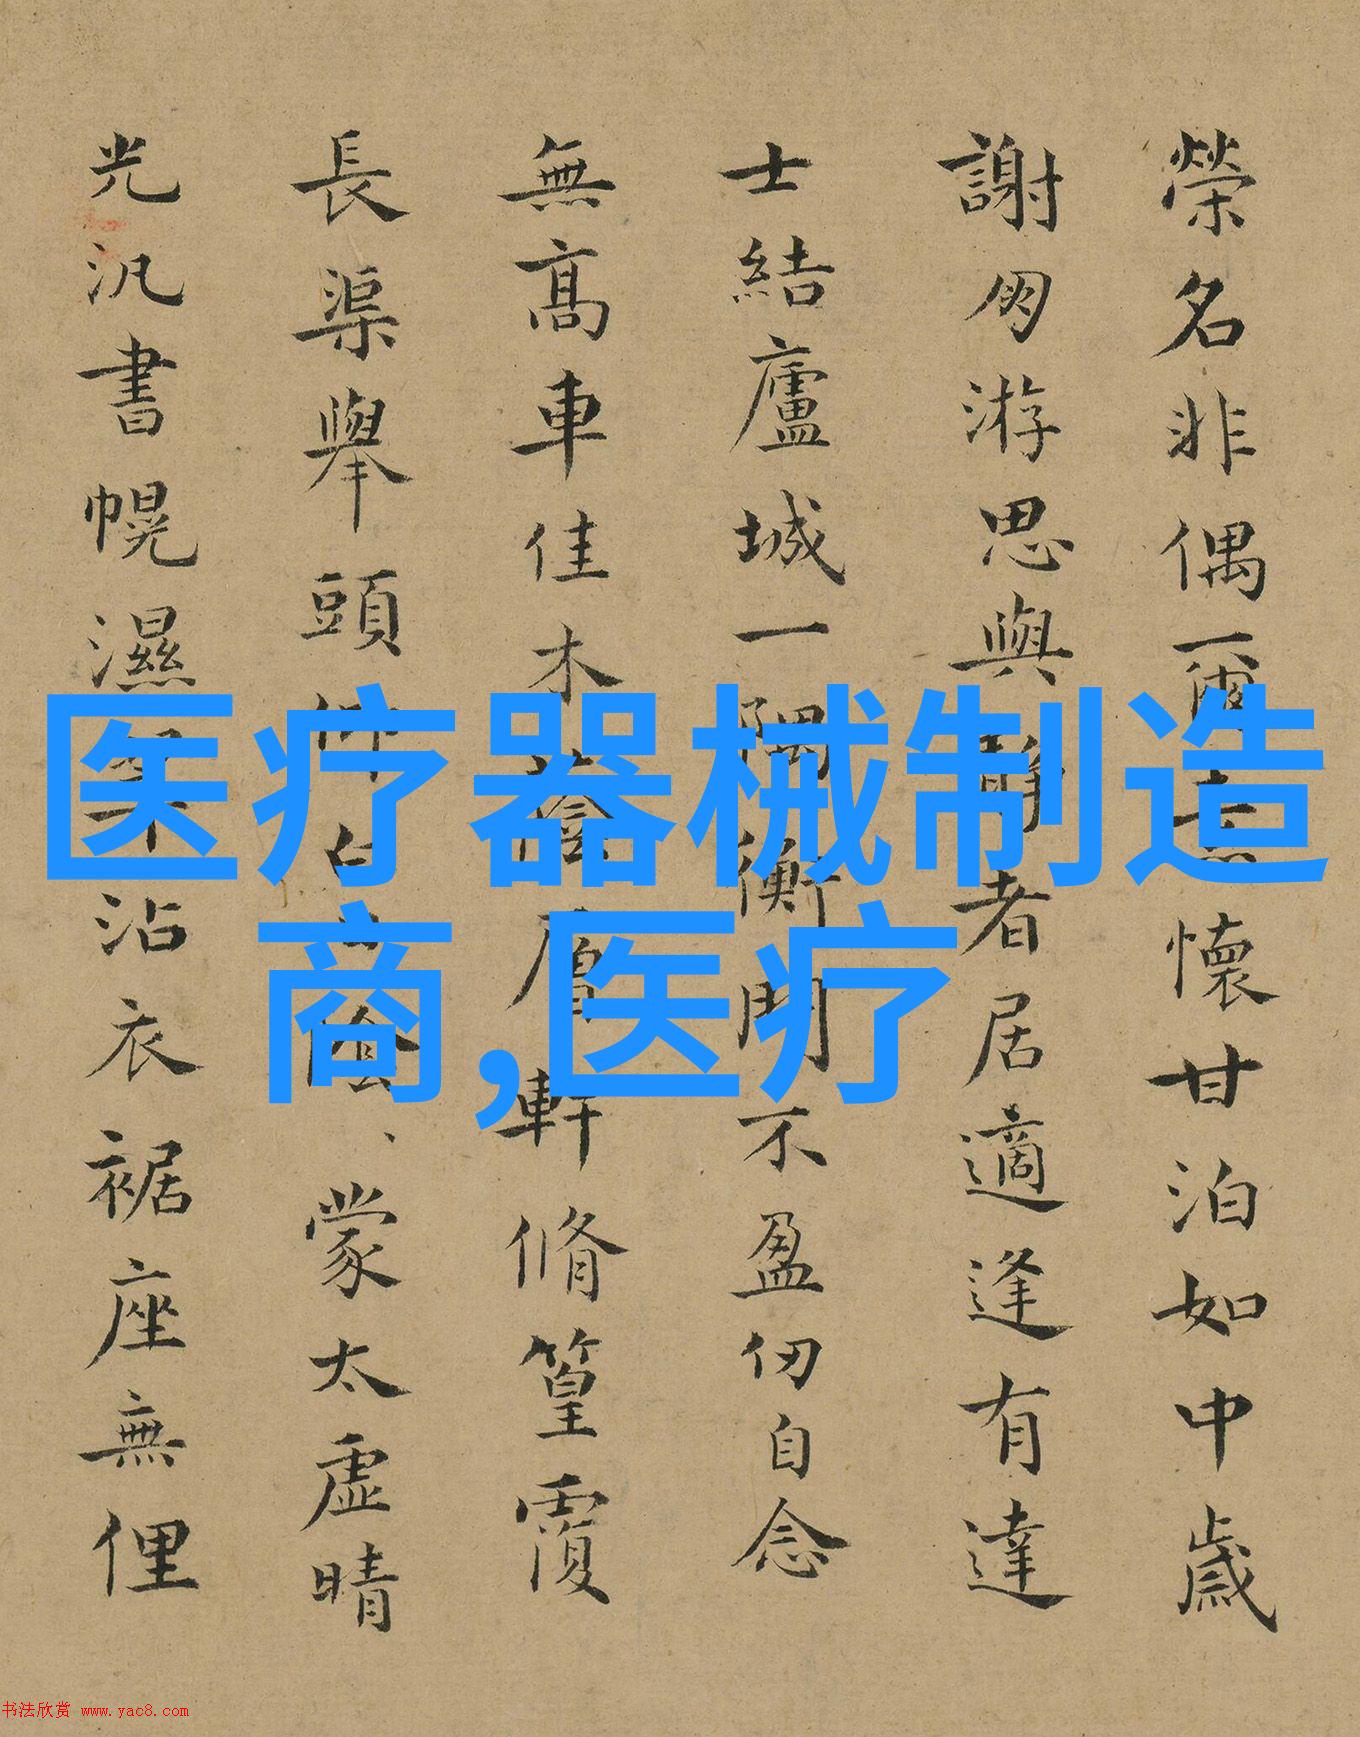 榮名非偶爾懷甘泊如中歲
謝朋游思與靜者居適逢有達
士結廬城一隅衡門不盈仞自念
無高車佳木蔭層軒脩篁覆
長渠舉頭仰白陰、蒙太虛晴
光汎書幌濕翠沾衣裾座無俚
医疗器械制造
商,医疗
书法欣赏 www.yac8.com